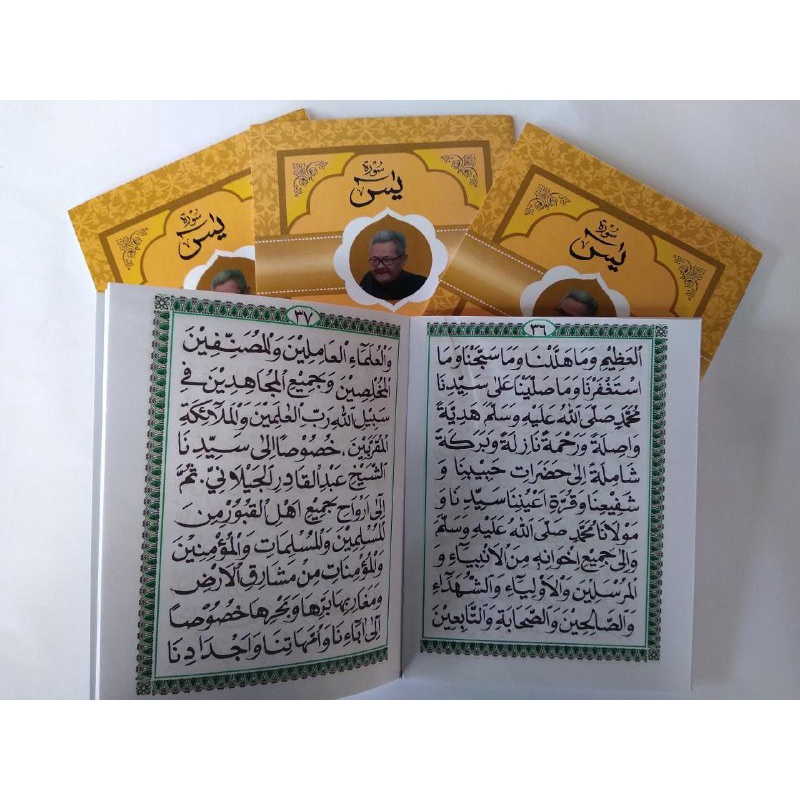 سُوْرَة
يٰسٓ
سُوْرَة
يٰسٓ
سُوْرَة
يٰسٓ
٣٦
الْعَظِيْمِ وَمَا هَلَّلْنَا وَمَا سَبَّحْنَا وَمَا
اسْتَغْفَرْنَا وَمَا صَلَّيْنَا عَلَى سَيِّدِنَا
مُحَمَّدٍ صَلَّى اللهُ عَلَيْهِ وَسَلَّمَ هَدِيَّةً
وَاصِلَةً وَرَحْمَةً نَازِلَةً وَبَرَكَةً
شَامِلَةً إِلَى حَضَرَاتِ حَبِيْبِنَا وَ
شَفِيْعِنَا وَقُرَّةِ اَعْيُنِنَا سَيِّدِنَا وَ
مَوْلَانَا مُحَمَّدٍ صَلَّى اللهُ عَلَيْهِ وَسَلَّمَ
وَاِلَى جَمِيْعِ اِخْوَانِهِ مِنَ الْاَنْبِيَاءِ وَ
الْمُرْسَلِيْنَ وَالْاَوْلِيَاءِ وَالشُّهَدَاءِ
وَالصَّالِحِيْنَ وَالصَّحَابَةِ وَالتَّابِعِيْنَ
٣٧
وَالْعُلَمَاءِ الْعَامِلِيْنَ وَالْمُصَنِّفِيْنَ
الْمُخْلِصِيْنَ وَجَمِيْعِ الْمُجَاهِدِيْنَ فِى
سَبِيْلِ اللهِ رَبِّ الْعٰلَمِيْنَ وَالْمَلَائِكَةِ
الْمُقَرَّبِيْنَ، خُصُوْصًا اِلَى سَيِّدِنَا
الشَّيْخِ عَبْدِ الْقَادِرِ الْجَيْلَانِيْ. ثُمَّ
اِلَى اَرْوَاحِ جَمِيْعِ اَهْلِ الْقُبُوْرِ مِنَ
الْمُسْلِمِيْنَ وَالْمُسْلِمَاتِ وَالْمُؤْمِنِيْنَ
وَالْمُؤْمِنَاتِ مِنْ مَشَارِقِ الْاَرْضِ
وَمَغَارِبِهَا بَرِّهَا وَبَحْرِهَا خُصُوْصًا
اِلَى اٰبَاءِنَا وَاُمَّهَاتِنَا وَاَجْدَادِنَا